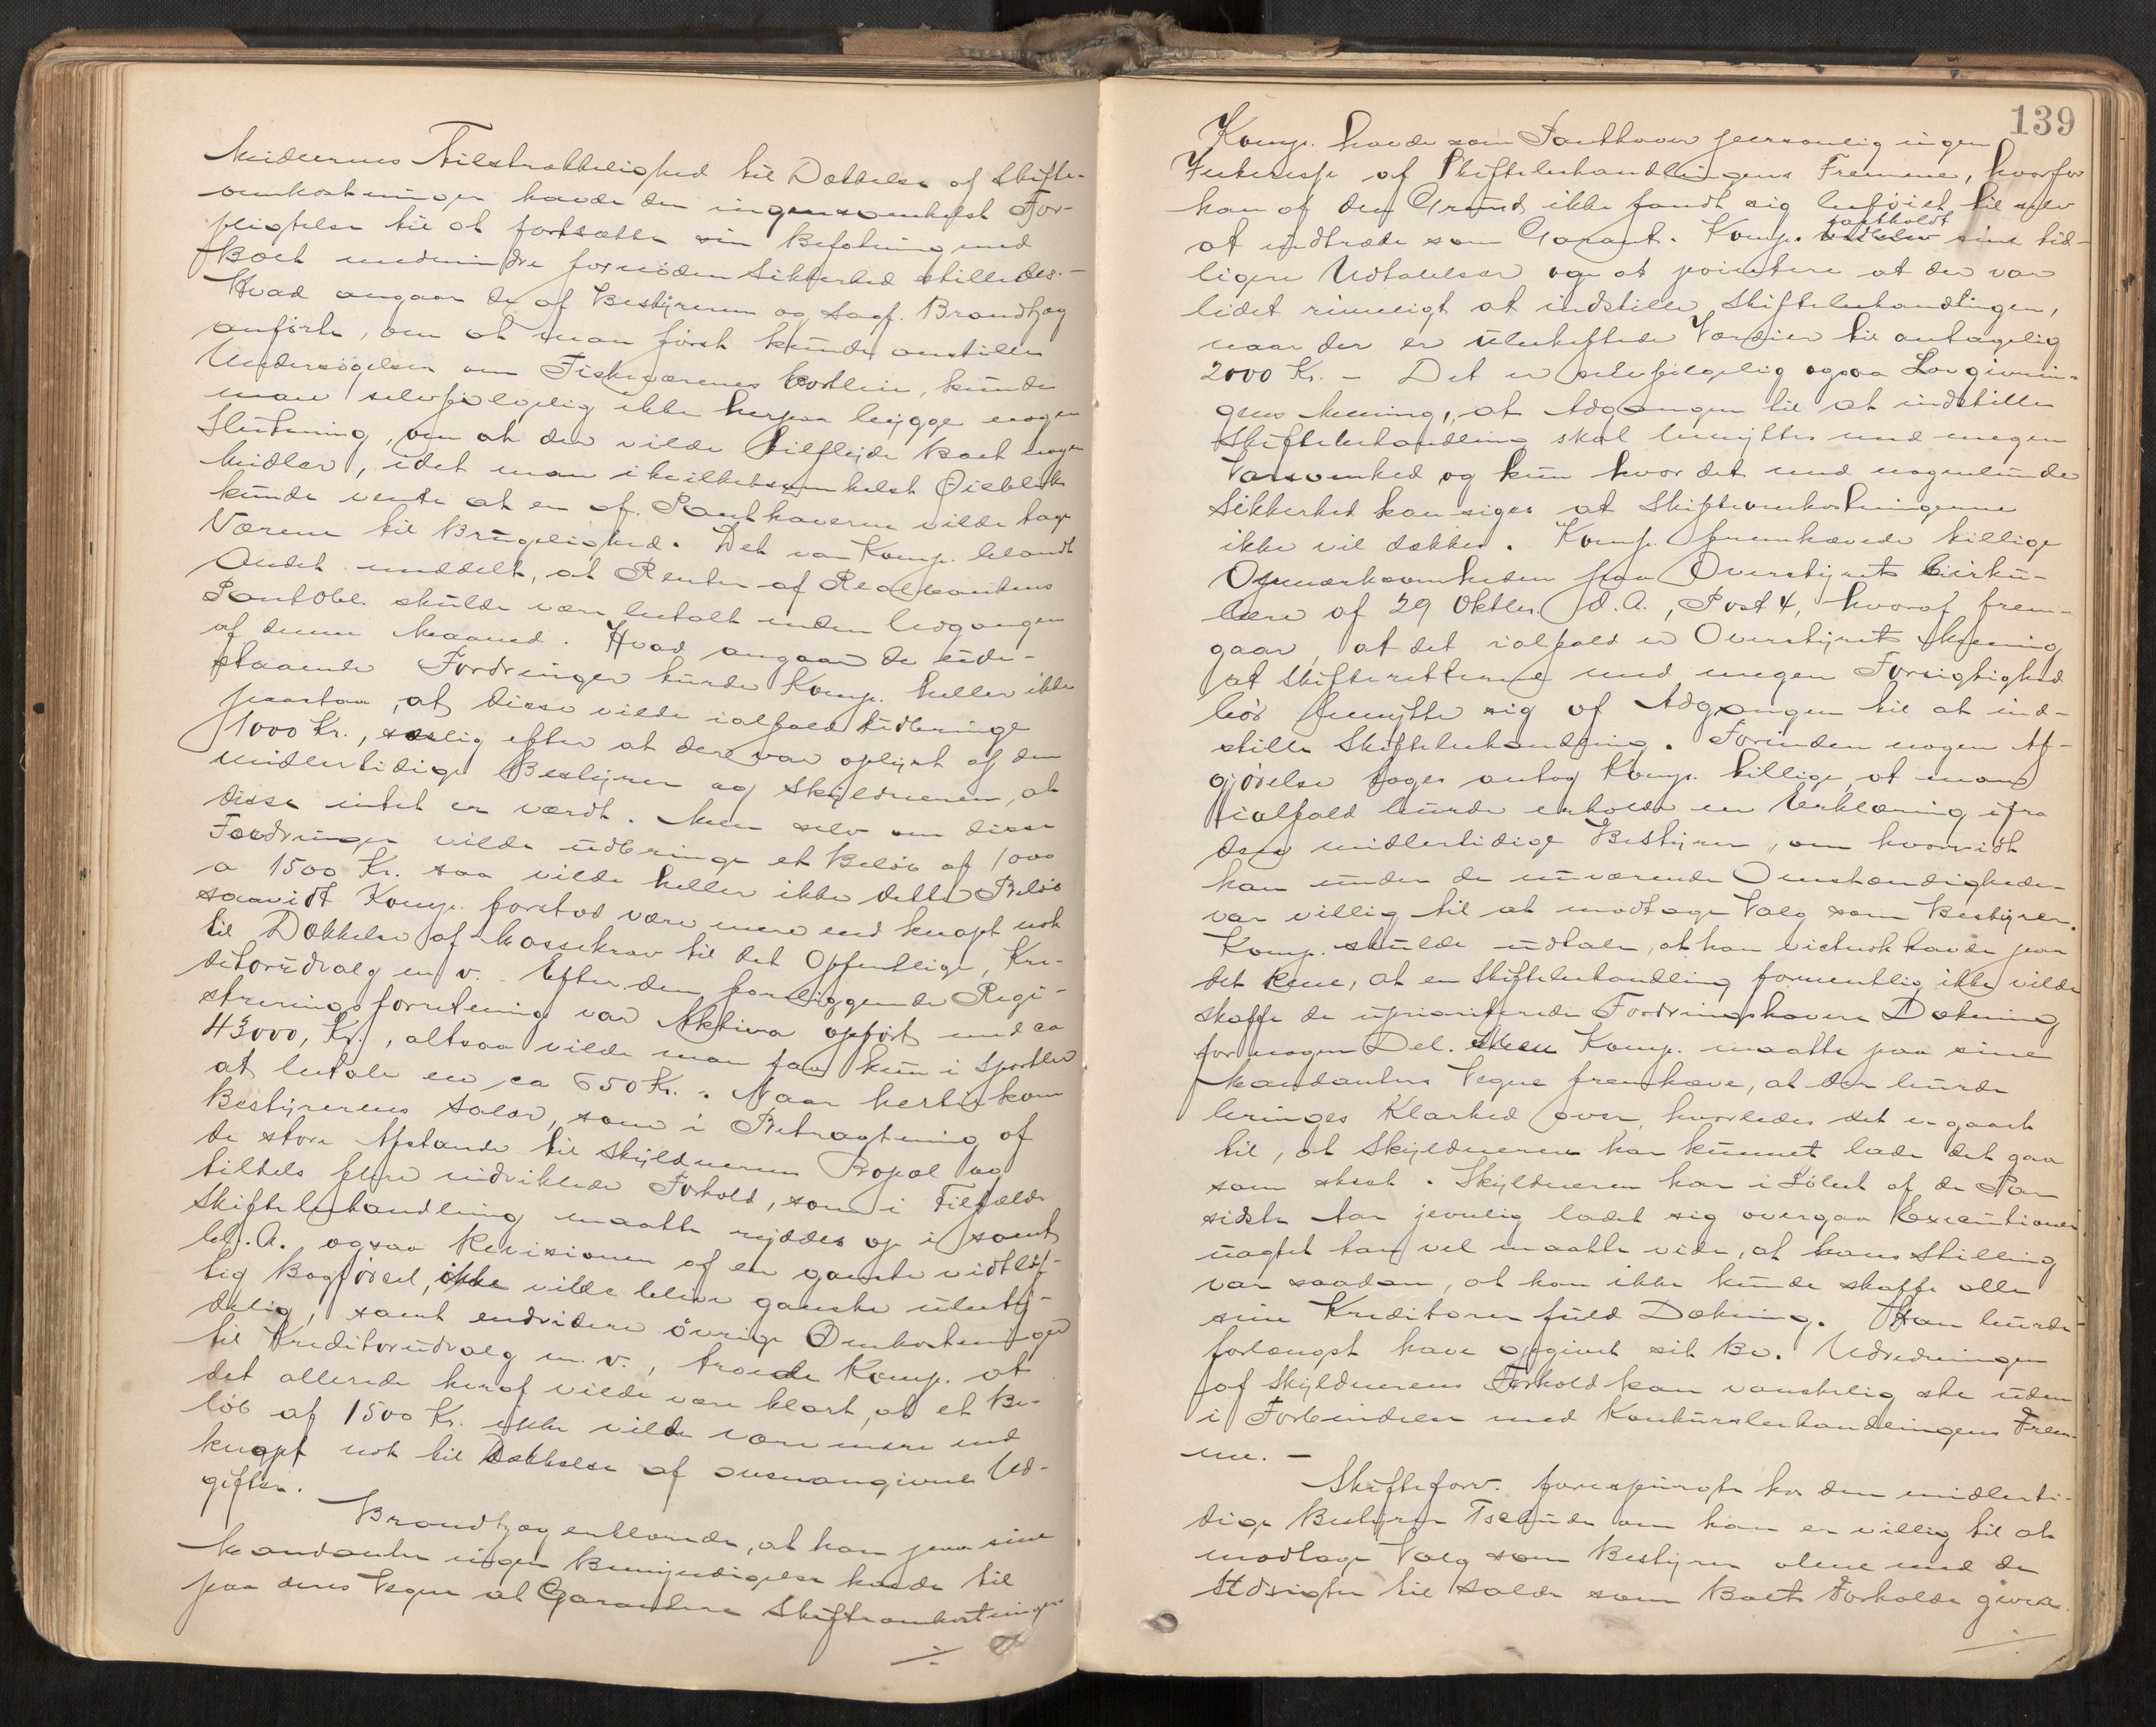 Midlernes Tilstrækkelighed til Dækkelse af Skifte-
omkostninger havde den ingensomhelst For-
pligtelse til at fortsætte sin Befatning med
Boet medmindre fornøden Sikkerhed stilledes. -
Hvad angaar de af Bestyreren og Sagf. Brandtzæg
anførte, om at man først kunde anstille
Undersøgelser om Fiskeværenes Bortleie, kunde
man selvfølgelig ikke herpaa bygge nogen
Slutning, om at der vilde tilflyde Boet nogen
Midler, idet man i hvilketsomhelst Øieblik
kunde vente at en af Panthaverne vilde tage
Værene til Brugelighed. Det var Komp. blandt
Andet meddelt, at Renter af Realbankens
Pantobl. skulde være betalt inden Udgangen
af denne Maaned. Hvad angaar de ude-
staaende Fordringer turde Komp. heller ikke
paastaa, at disse vilde ialfald indbringe
1000 Kr., særlig efter at der var oplyst af den
midlertidige Bestyrer og Skyldneren, at
disse intet er værdt. Men selv om disse
Fordringer vilde indbringe et Beløb af 1000
a 1500 Kr. saa vilde heller ikke dette Beløb
saavidt Komp. forstod være mere end knapt nok
til Dækkelse af Massekrav til det Offentlige, Kre-
ditorudvalg m. v. Efter den foreliggende Regi-
streringsforretning var Aktiva opført med ca
43000, Kr., altsaa vilde man faa kun i Sportler
at betale en ca 650 Kr. Naar hertil kom
Bestyrerens Salær, som i Betragtning af
de store Afstande til Skyldnerens Bopæl og
tildels flere indviklede Forhold, som i Tilfælde
Skiftebehandling maatte ryddes op i samt
bl. A. ogsaa Revisionen af en ganske vidtløf-
tig Bogførsel, ikke vilde blive ganske ubety-
delig, samt endvidere øvrige Omkostninger
til Kreditorudvalg m. v., troede Komp. at
det allerede heraf vilde være klart, at et Be-
løb af 1500 Kr. ikke vilde være mere end
knapt nok til Dækkelse af ovenangivne Ud-
gifter.
Brandtzæg erklærede, at han paa sine
Mandanter ingen Bemyndigelse havde til
paa deres Vegne at Garantere Skifteomkostninger
÷
139
Komp. havde som Panthaver personlig ingen
Interesse af Skiftebehandlingens Fremme, hvorfor
han af den Grund ikke fandt sig beføiet til selv
at indtræde som Garant. Komp. fastholdt sine tid-
ligere Udtalelser og at pointere at der var
lidet rimeligt at indstille Skiftebehandlingen,
naar der er ubeheftede Værdier til antagelig
2000 Kr. - Det er selvfølgelig ogsaa Lovgivnin-
gens Mening, at Adgangen til at indstille
Skiftebehandling skal benyttes med megen
Varsomhed og kun hvor det med nogenlunde
Sikkerhed kan siges at Skifteomkostningerne
ikke vil dækkes. Komp. fremhævede tillige
Opmærksomheden paa Overstyrets Cirku-
lære af 29 Oktbr. d. A., Post 4, hvoraf frem-
gaar, at det ialfald er Overstyrets Mening
at Skifteretterne med megen Forsigtighed
bør benytte sig af Adgangen til at ind-
stille Skiftebehandling. Forinden nogen Af-
gjørelse tages antog Komp. tillige, at man
ialfald burde erholde en Erklæring ifra
den midlertidige Bestyrer, om hvorvidt
han under de nuværende Omstændigheder
var villig til at modtage Valg som Bestyrer.
Komp. skulde udtale, at han vistnok havde paa
det Rene, at en Skiftebehandling formentlig ikke vilde
skaffe de upriorterede Fordringshavere Dækning
for nogen Del. Men Komp. maatte paa sine
Mandanters Vegne fremhæve, at der burde
bringes Klarhed over, hvorledes det er gaaet
til, at Skyldneren har kunnet lade det gaa
som skeet. Skyldneren har i Løbet af de Par
sidste Aar jevnlig ladet sig overgaa Executioner
uagtet han vel maatte vide, at hans Stilling
var saadan, at han ikke kunde skaffe alle
sine Kreditorer fuld Dækning. Han burde
forlængst have opgivet sit Bo. Udredningen
af Skyldnerens Forhold kan vanskelig ske uden
i Forbindelse med Konkursbehandlingens Frem-
me. -
Skifteforv. forespurgte hos den midlerti-
dige Bestyrer om han er villig til at
modtage Valg som Bestyrer alene med de
Udsigter til Salær som Boets Forholde giver.
÷